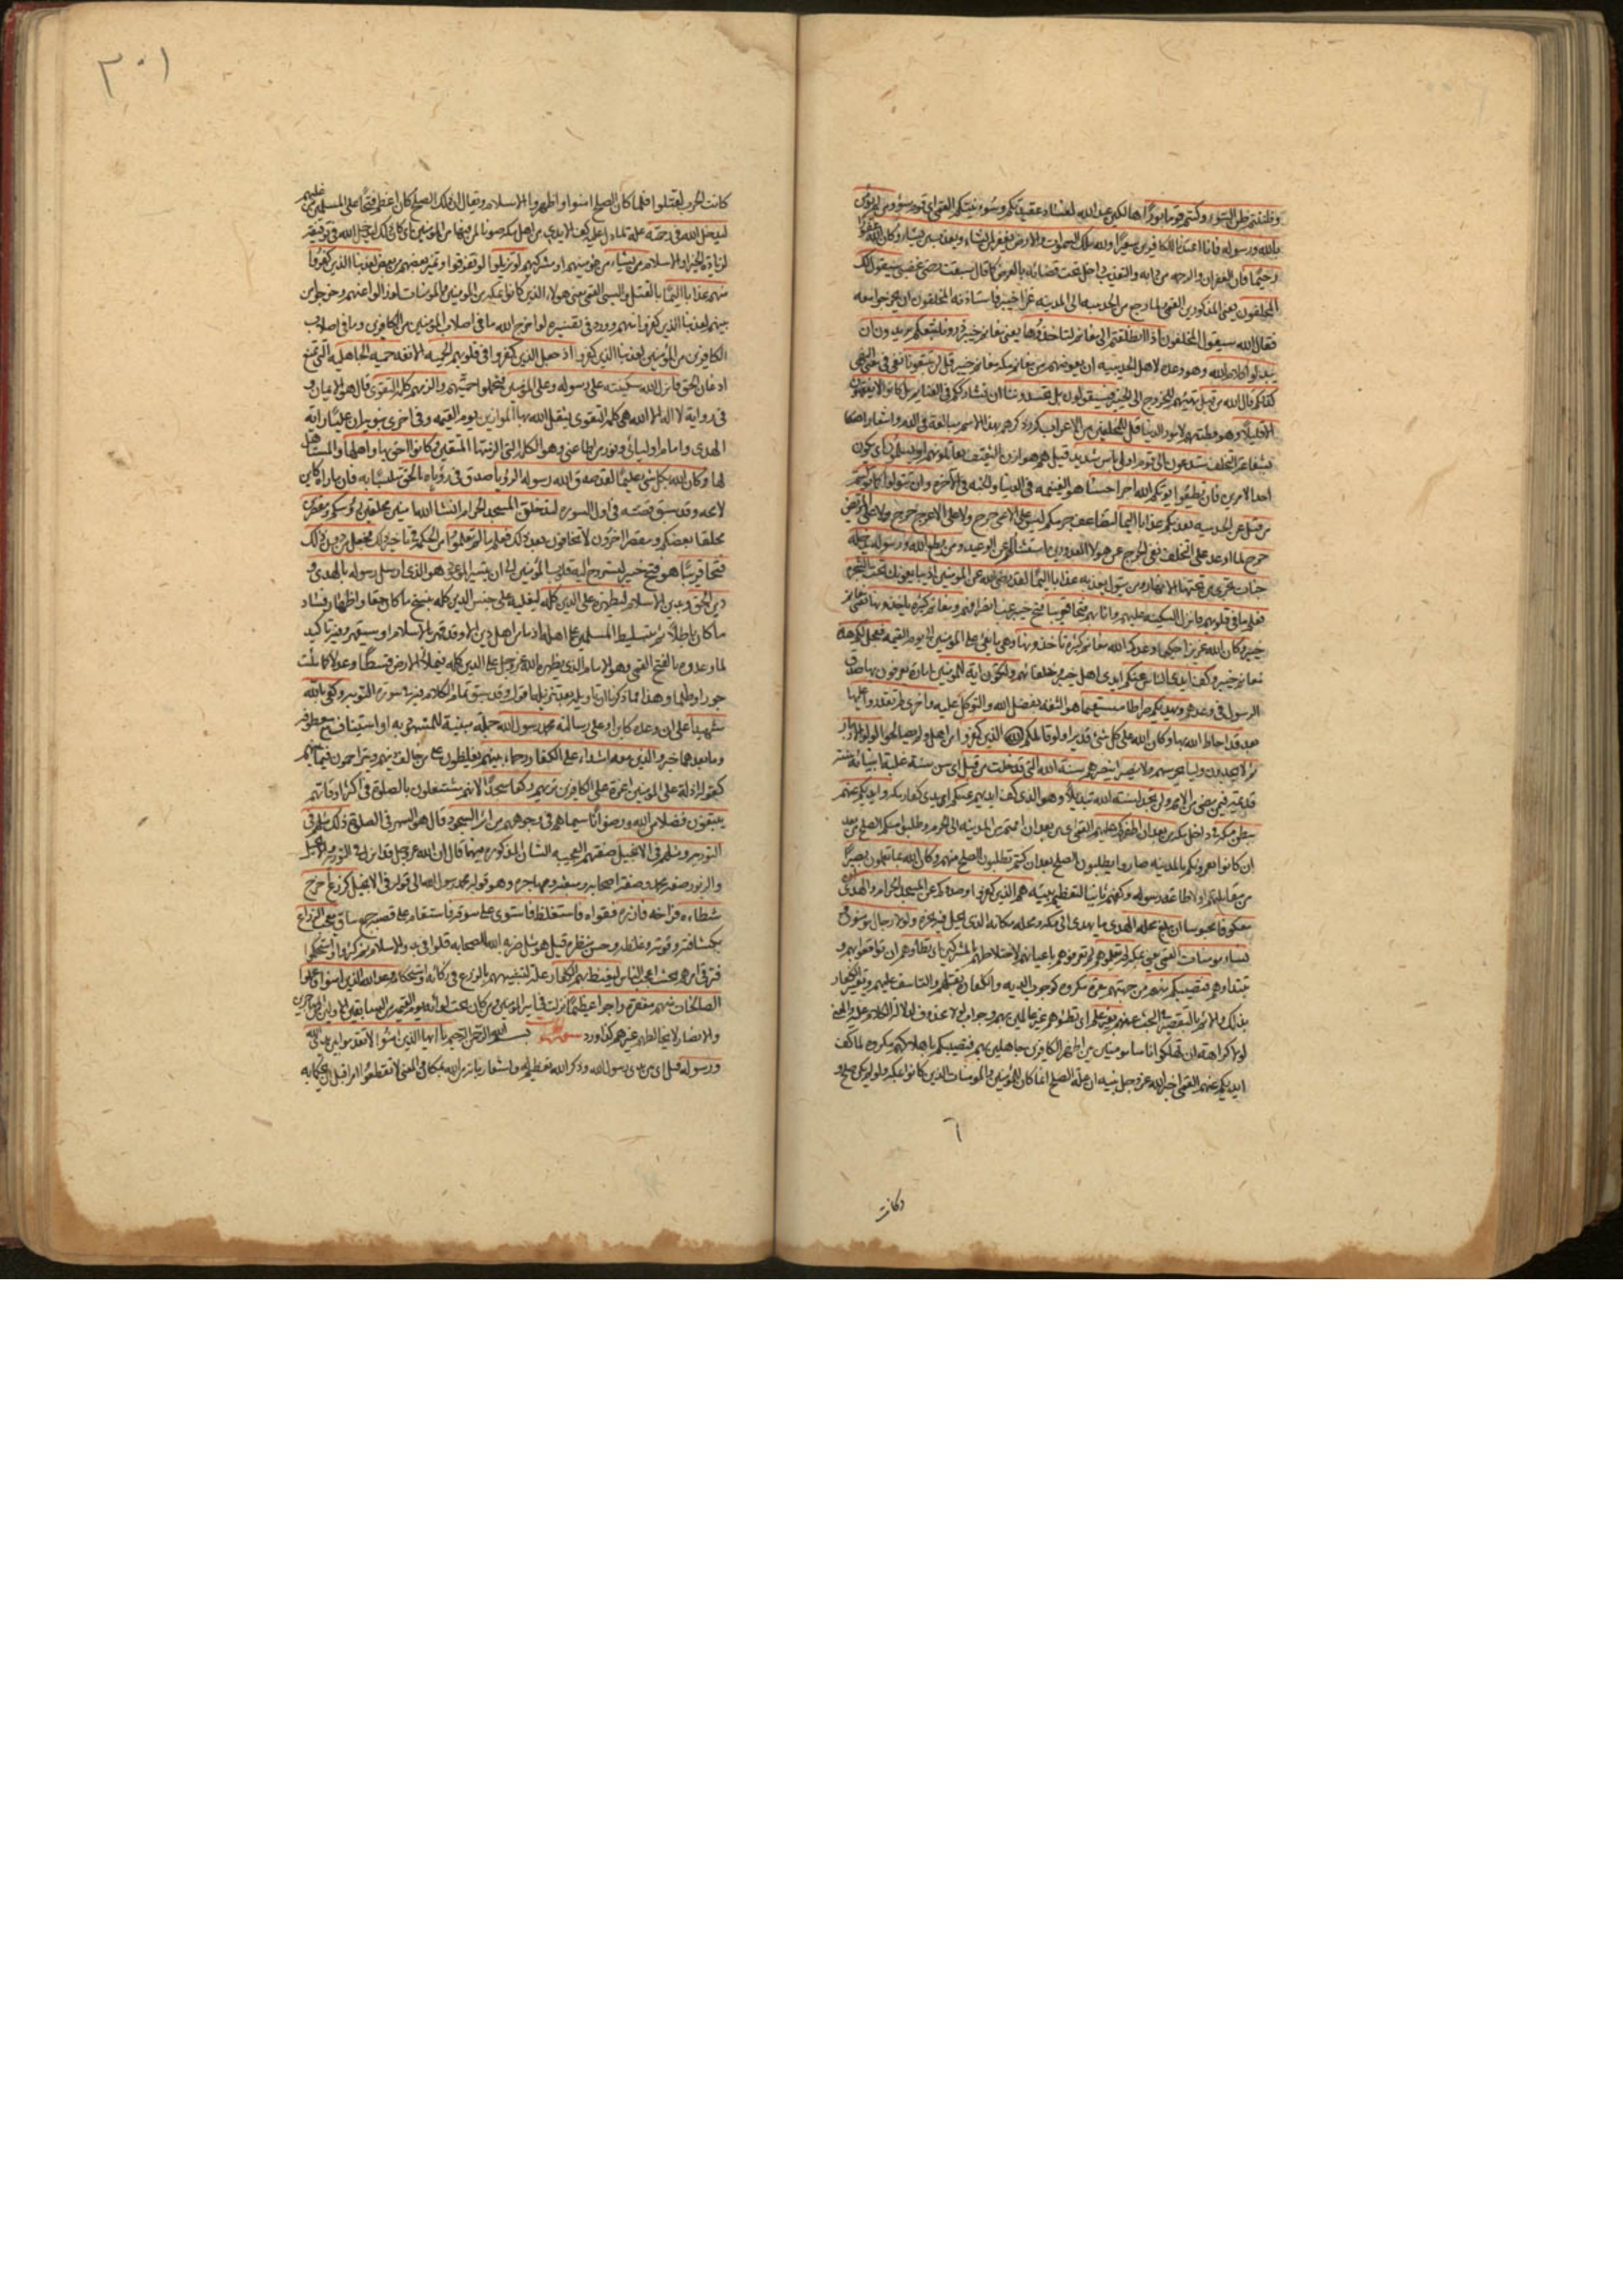 وظننتم ظن السوء وكنتم قوما بورا هالكين عند الله لفساد عقيدتكم وسوء نيتكم القمي اي قوم سوء ومن لم يؤمن
بالله ورسوله فانا اعتدنا للكافرين سعيرا ولله ملك السموات والارض يغفر لمن يشاء ويعذب من يشاء وكان الله غفورا
رحيما فان الغفران والرحمة من دابه والتعذيب داخل تحت قضائه بالعرض كما قال سبقت رحمتي غضبي سيقول لك
المخلفون يعني المذكورين القمي ولما رجع من الحديبية الى المدينة غزا خيبر فاستاذنه المخلفون ان يخرجوا معه
فقال الله سيقول المخلفون اذا انطلقتم الى مغانم لتاخذوها يعني مغانم خيبر ذرونا نتبعكم يريدون ان
يبدلوا كلام الله وهو وعده لاهل الحديبية ان يعوضهم من مغانم مكة مغانم خيبر قل لن تتبعونا نفي في معنى النهي
كذلكم قال الله من قبل تهيئهم للخروج الى خيبر فسيقولون بل تحسدوننا ان نشارككم في الغنايم بل كانوا لا يفقهون
الا قليلا وهو فطنتهم لامور الدنيا قل للمخلفين من الاعراب كرر ذكرهم بهذا الاسم مبالغة في الذم واشعارا
بشناعة التخلف ستدعون الى قوم اولي باس شديد قيل هم هوازن وثقيف تقاتلونهم او يسلمون اي يكون
احد الامرين فان تطيعوا يؤتكم الله اجرا حسنا هو الغنيمة في الدنيا والجنة في الاخرة وان تتولوا كما توليتم
من قبل عن الحديبية يعذبكم عذابا اليما لتضاعف جرمكم ليس على الاعمى حرج ولا على الاعرج حرج ولا على المريض
حرج لما اوعد على التخلف نفى الحرج عن هؤلاء المعذورين استثناء لهم عن الوعيد ومن يطع الله ورسوله يدخله
جنات تجري من تحتها الانهار ومن يتول يعذبه عذابا اليما لقد رضي الله عن المؤمنين اذ يبايعونك تحت الشجرة
فعلم ما في قلوبهم فانزل السكينة عليهم واثابهم فتحا قريبا فتح خيبر غب انصرافهم ومغانم كثيرة ياخذونها يعني مغانم
خيبر وكان الله عزيزا حكيما وعدكم الله مغانم كثيرة تاخذونها وهي ما يفئ على المؤمنين الى يوم القيمة فعجل لكم هذه
مغانم خيبر وكف ايدي الناس عنكم ايدي اهل خيبر وحلفائهم ولتكون اية للمؤمنين امارة يعرفون بها صدق
الرسول في وعدهم ويهديكم صراطا مستقيما هو الثقة بفضل الله والتوكل عليه واخرى لم تقدروا عليها
بعد قد احاط الله بها وكان الله على كل شئ قديرا ولو قاتلكم الذين كفروا من اهل مكة ولم يصالحوا لولوا الادبار
ثم لا يجدون وليا يحرسهم ولا نصيرا ينصرهم سنة الله التي قد خلت من قبل اي سن سنة غلبة انبيائه سنة
قديمة فيمن مضى من الامم ولن تجد لسنة الله تبديلا وهو الذي كف ايديهم عنكم ايدي كفار مكة وايديكم عنهم
ببطن مكة في داخل مكة من بعد ان اظفركم عليهم القمي اي من بعد ان اممتم من المدينة الى الحرم وطلبوا منكم الصلح من بعد
ان كانوا يغزونكم بالمدينة صاروا يطلبون الصلح بعد ان كنتم تطلبون الصلح منهم وكان الله بما تعملون بصيرا
من مقاتلتهم اولا طاعة لرسوله وكفهم ثانيا لتعظيم بيته هم الذين كفروا وصدوكم عن المسجد الحرام والهدي
معكوفا محبوسا ان يبلغ محله الهدي ما يهدى الى مكة ومحله مكانه الذي يحل فيه نحره ولولا رجال مؤمنون
ونساء مؤمنات القمي يعني بمكة لم تعلموهم لم تعرفوهم باعيانهم لاختلاطهم بالمشركين ان تطاوهم ان توقعوا بهم و
تبيدوهم فتصيبكم منهم من جهتهم معرة مكروه كوجوب الدية والكفارة بقتلهم والتاسف عليهم وتعيير الكفار
بذلك والاثم بالتقصير في البحث عنهم بغير علم اي تطؤهم غير عالمين بهم وجواب لولا محذوف لدلالة الكلام عليه والمعنى
لولا كراهة ان تهلكوا اناسا مؤمنين بين اظهر الكافرين جاهلين بهم فيصيبكم باهلاكهم مكروه لما كف
ايديكم عنهم القمي اخبر الله عز وجل نبيه ان علة الصلح انما كان للمؤمنين والمؤمنات الذين كانوا بمكة ولو لم يكن صلح و
وكانت
٣٠١
كانت الحرب لقتلوا فلما كان الصلح امنوا واظهروا الاسلام ويقال ان ذلك الصلح كان اعظم فتحا على المسلمين من غلبهم
ليدخل الله في رحمته علة لما دل عليه كف الايدي من اهل مكة صونا لمن فيها من المؤمنين اي كان ذلك ليدخل الله في توفيقه
لزيادة الخير او الاسلام من يشاء من مؤمنيهم او مشركيهم لو تزيلوا لو تفرقوا وتميز بعضهم من بعض لعذبنا الذين كفروا
منهم عذابا اليما بالقتل والسبي القمي يعني هؤلاء الذين كانوا بمكة من المؤمنين والمؤمنات لو زالوا عنهم وخرجوا من
بينهم لعذبنا الذين كفروا منهم وورد في تفسيره لو اخرج الله ما في اصلاب المؤمنين من الكافرين وما في اصلاب
الكافرين من المؤمنين لعذبنا الذين كفروا اذ جعل الذين كفروا في قلوبهم الحمية الانفة حمية الجاهلية التي تمنع
اذعان الحق فانزل الله سكينته على رسوله وعلى المؤمنين فتحملوا حميتهم والزمهم كلمة التقوى قال هو الايمان و
في رواية لا اله الا الله هي كلمة التقوى يثقل الله بها الموازين يوم القيمة وفي اخرى ان عليا راية
الهدى وامام اوليائي ونور من اطاعني وهو الكلمة التي الزمتها المتقين وكانوا احق بها واهلها والمستاهل
لها وكان الله بكل شئ عليما لقد صدق الله رسوله الرؤيا صدق في رؤياه بالحق ملتبسا به فان ما راه كاين
لا محالة وقد سبق قصته في اول السورة لتدخلن المسجد الحرام ان شاء الله امنين محلقين رؤسكم ومقصرين
محلقا بعضكم ومقصرا اخرون لا تخافون بعد ذلك فعلم ما لم تعلموا من الحكمة في تاخير ذلك فجعل من دون ذلك
فتحا قريبا هو فتح خيبر ليستروح اليه قلوب المؤمنين الى ان يتيسر الموعود هو الذي ارسل رسوله بالهدى و
دين الحق وبدين الاسلام ليظهره على الدين كله ليغلبه على جنس الدين كله بنسخ ما كان حقا واظهار فساد
ما كان باطلا ثم بتسليط المسلمين على اهله اذ ما من اهل دين الا وقد قهر بالاسلام او سيقهر وفيه تاكيد
لما وعده بالفتح القمي وهو الامام الذي يظهره الله عز وجل على الدين كله فيملا الارض قسطا وعدلا كما ملئت
جورا وظلما وهذا مما ذكرنا ان تاويله بعد تنزيله اقول وقد سبق تمام الكلام فيه في سورة التوبة وكفى بالله
شهيدا على ان وعده كاين او على رسالته محمد رسول الله جملة مبينة للمشهود به او استيناف مع معطوفه
وما بعدهما خبر والذين معه اشداء على الكفار رحماء بينهم يغلظون على من خالف دينهم ويتراحمون فيما بينهم
كقوله اذلة على المؤمنين اعزة على الكافرين تريهم ركعا سجدا لانهم مشتغلون بالصلوة في اكثر اوقاتهم
يبتغون فضلا من الله ورضوانا سيماهم في وجوههم من اثر السجود قال هو السهر في الصلوة ذلك مثلهم في
التورية ومثلهم في الانجيل صفتهم العجيبة الشان المذكورة فيهما قال ان الله عز وجل قد انزل في التورية والانجيل
والزبور صفة محمد وصفة اصحابه ومبعثه ومهاجره وهو قوله محمد رسول الله الى قوله في الانجيل كزرع اخرج
شطاه فراخه فازره فقواه فاستغلظ فاستوى على سوقه فاستقام على قصبه جمع ساق يعجب الزراع
بكثافته وقوته وغلظه وحسن منظره قيل هو مثل ضربه الله للصحابة قلوا في بدو الاسلام ثم كثروا واستحكموا
فترقى امرهم بحيث اعجب الناس ليغيظ بهم الكفار علة لتشبيههم بالزرع في زكائه واستحكامه وعد الله الذين امنوا وعملوا
الصالحات منهم مغفرة واجرا عظيما
والانصار لا يخالطهم غيرهم كذا ورد سورة الحجرات بسم الله الرحمن الرحيم يا ايها الذين امنوا لا تقدموا بين يدي الله
ورسوله قيل اي بين يدي رسول الله وذكر الله تعظيم له واشعار بانه من الله بمكان والمعنى لا تقطعوا امرا قبل ان يحكما به